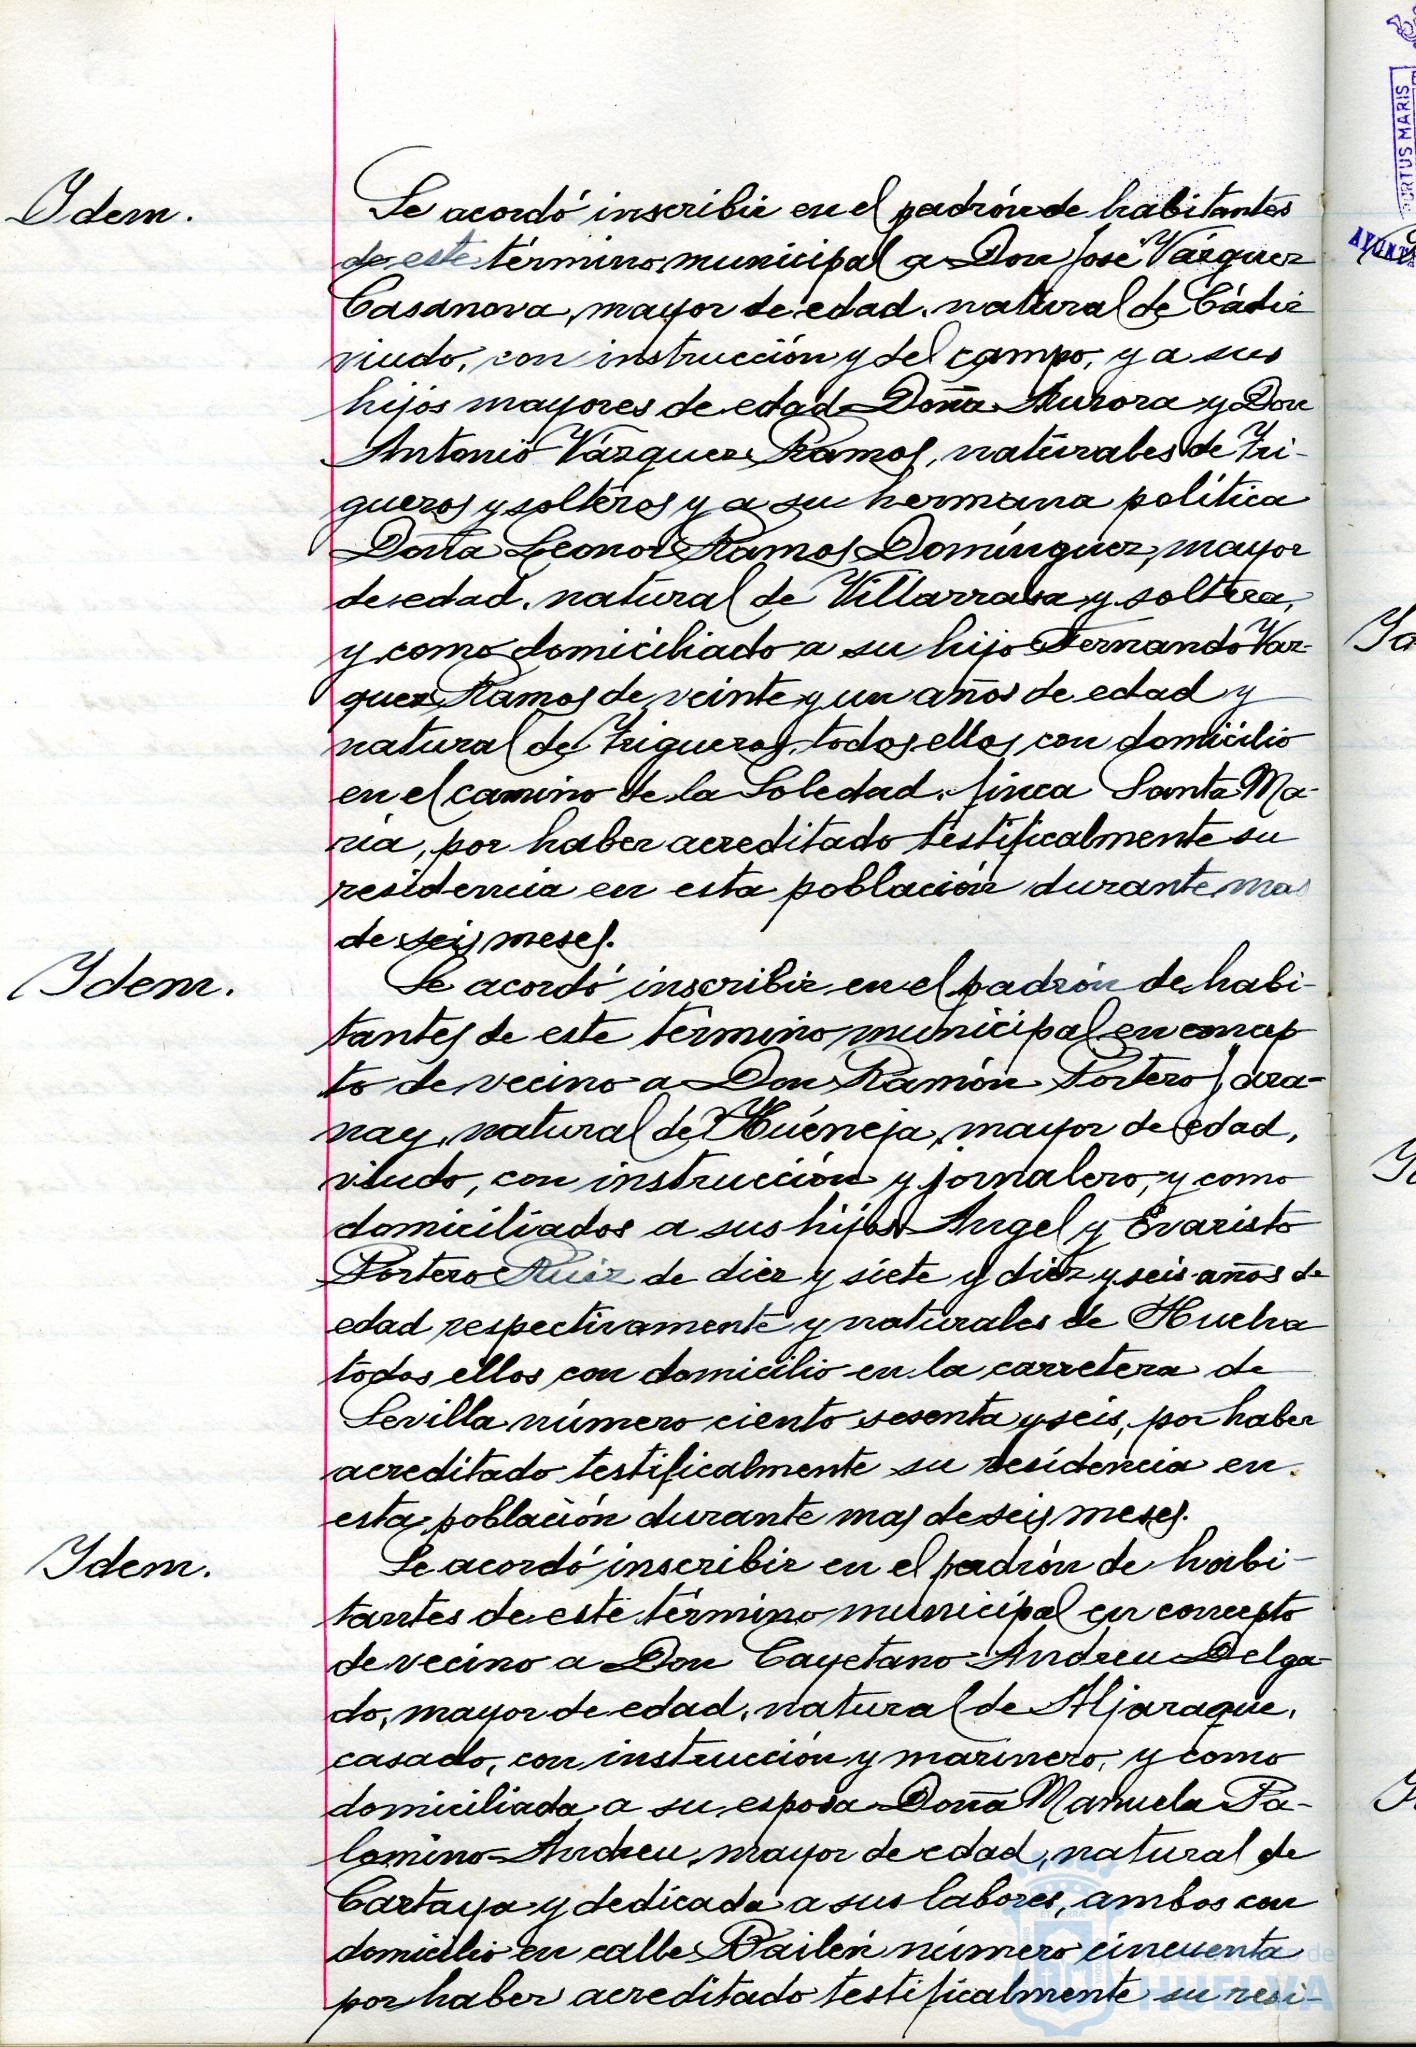 Idem.
Se acordó inscribir en el padrón de habitantes
de este término municipal a Don José Vázquez
Casanova, mayor de edad, natural de Cádiz
viudo, con instrucción y del campo, y a sus
hijos mayores de edad Doña Aurora y Don
Antonio Vázquez Ramos, naturales de Tri-
gueros y solteros y a su hermana política
Doña Leonor Ramos Domínguez, mayor
de edad, natural de Villarrasa y soltera,
y como domiciliado a su hijo Fernando Váz-
quez Ramos de veinte y un años de edad y
natural de Trigueros, todos ellos con domicilio
en el camino de la Soledad, finca Santa Ma-
ría, por haber acreditado testificalmente su
residencia en esta población durante mas
de seis meses.
Idem.
Se acordó inscribir en el padrón de habi-
tantes de este término municipal en concep
to de vecino a Don Ramón Portero
natural de Huéneja, mayor de edad,
viudo, con instrucción y jornalero, y como
domiciliados a sus hijos Angel y Evaristo
Portero Ruiz de diez y siete y diez y seis años de
edad respectivamente y naturales de Huelva
todos ellos con domicilio en la carretera de
Sevilla número ciento sesenta y seis, por haber
acreditado testificalmente su residencia en
esta población durante mas de seis meses.
Idem.
Se acordó inscribir en el padrón de habi-
tantes de este término municipal en concepto
de vecino a Don Cayetano Andreu Delga-
do, mayor de edad, natural de Aljaraque,
casado, con instrucción y marinero, y como
domiciliada a su esposa Doña Manuela Pa-
lomino Andreu, mayor de edad, natural de
Cartaya y dedicada a sus labores, ambos con
domicilio en calle Bailén número cincuenta
por haber acreditado testificalmente su resi-
PORTUS MARIS
HUELVA